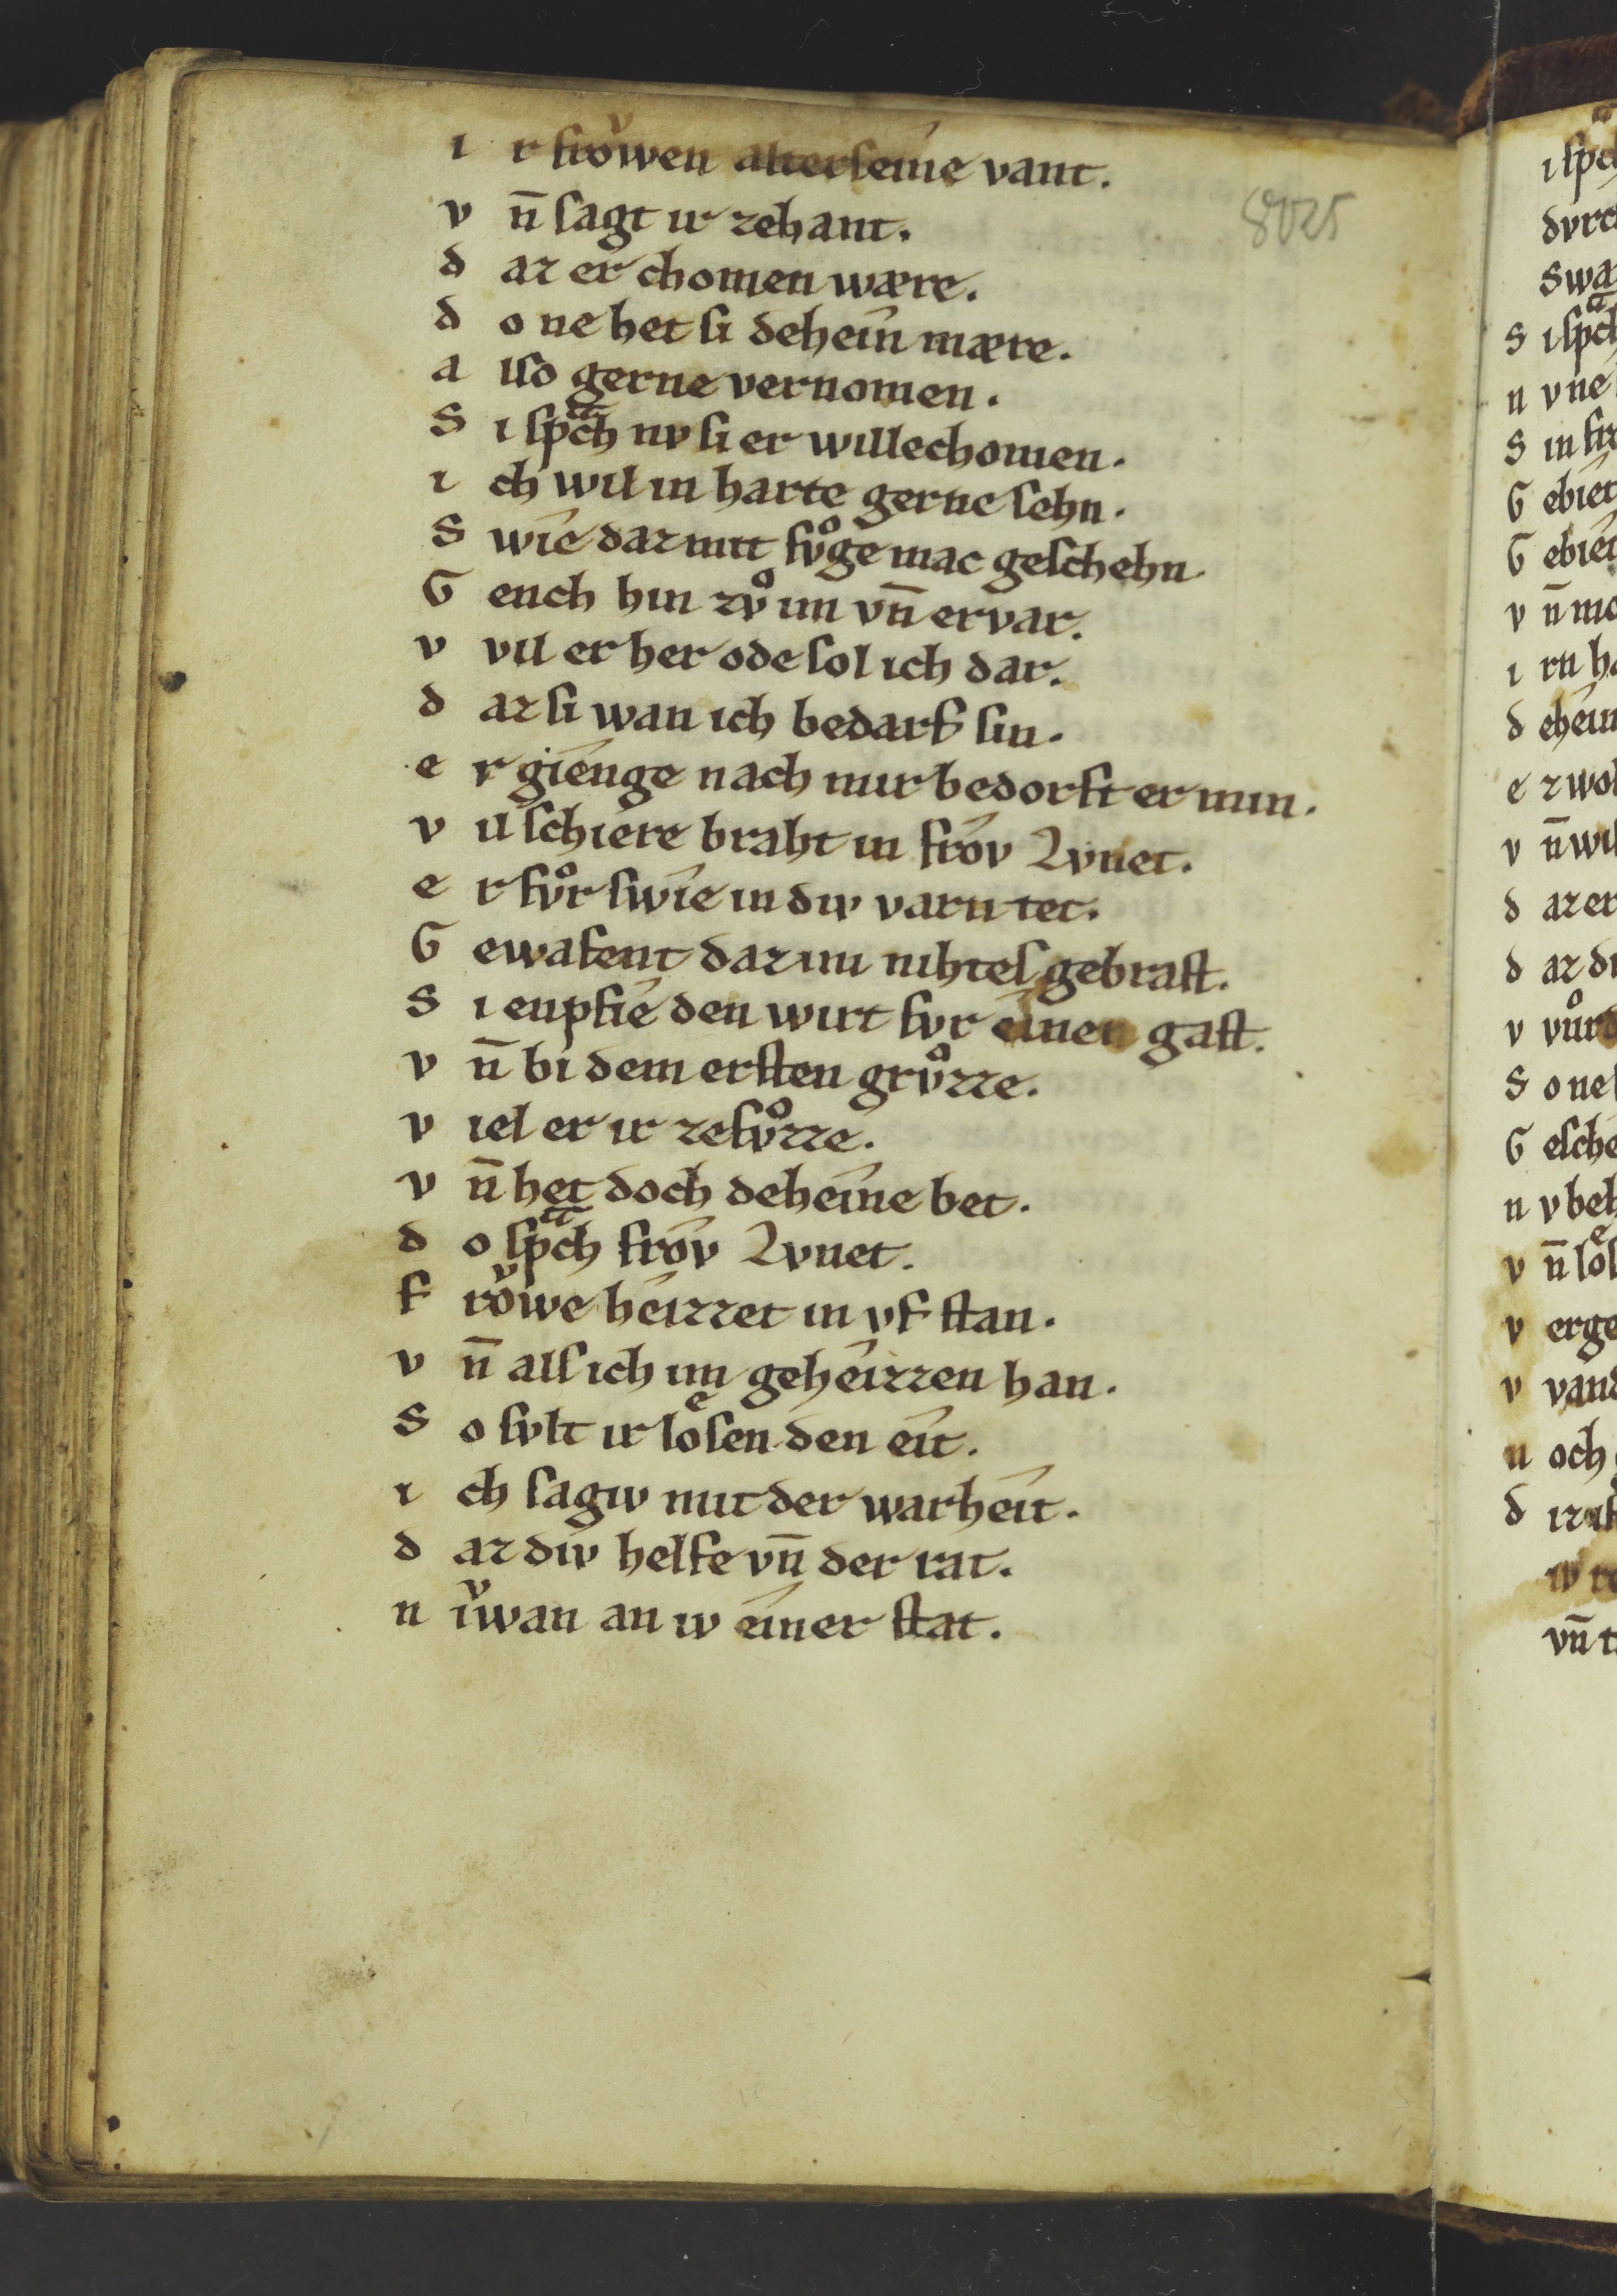 i r froͮwen alterseine vant.
8025
v n̄ sagt ir zehant.
d az er chomen wære.
d o ne het si dehein mære.
a lso gerne vernomen.
S i spͣch nv si er willechomen.
i ch wil in harte gerne sehn.
S wie daz mit fvͦge mac geschehn.
G ench hin zvͦ im vn̄ ervar.
v vil er her ode sol ich dar.
d az si wan ich bedarf sin.
e r gienge nach mir bedorft er min.
v il schiere braht in frov Lvnet.
e r fvͦr swie in div varn tet.
G ewafent daz im nihtes gebrast.
S i enpfie den wirt fvr einen gast.
v n̄ bi dem ersten grvͦzze.
v iel er ir zefvͦzze.
v n̄ het doch deheine bet.
d o spͣch frov Lvnet.
f roͮwe heizzet in vf stan.
v n̄ als ich im geheizzen han.
S o svlt ir loͤsen den eit.
i ch sagiv mit der warheit.
d az div helfe vn̄ der rat.
n iͮwan an iv einer stat.
i spͣch
S i spͣch
n v ne
d az er
S o ne
v erge
n och